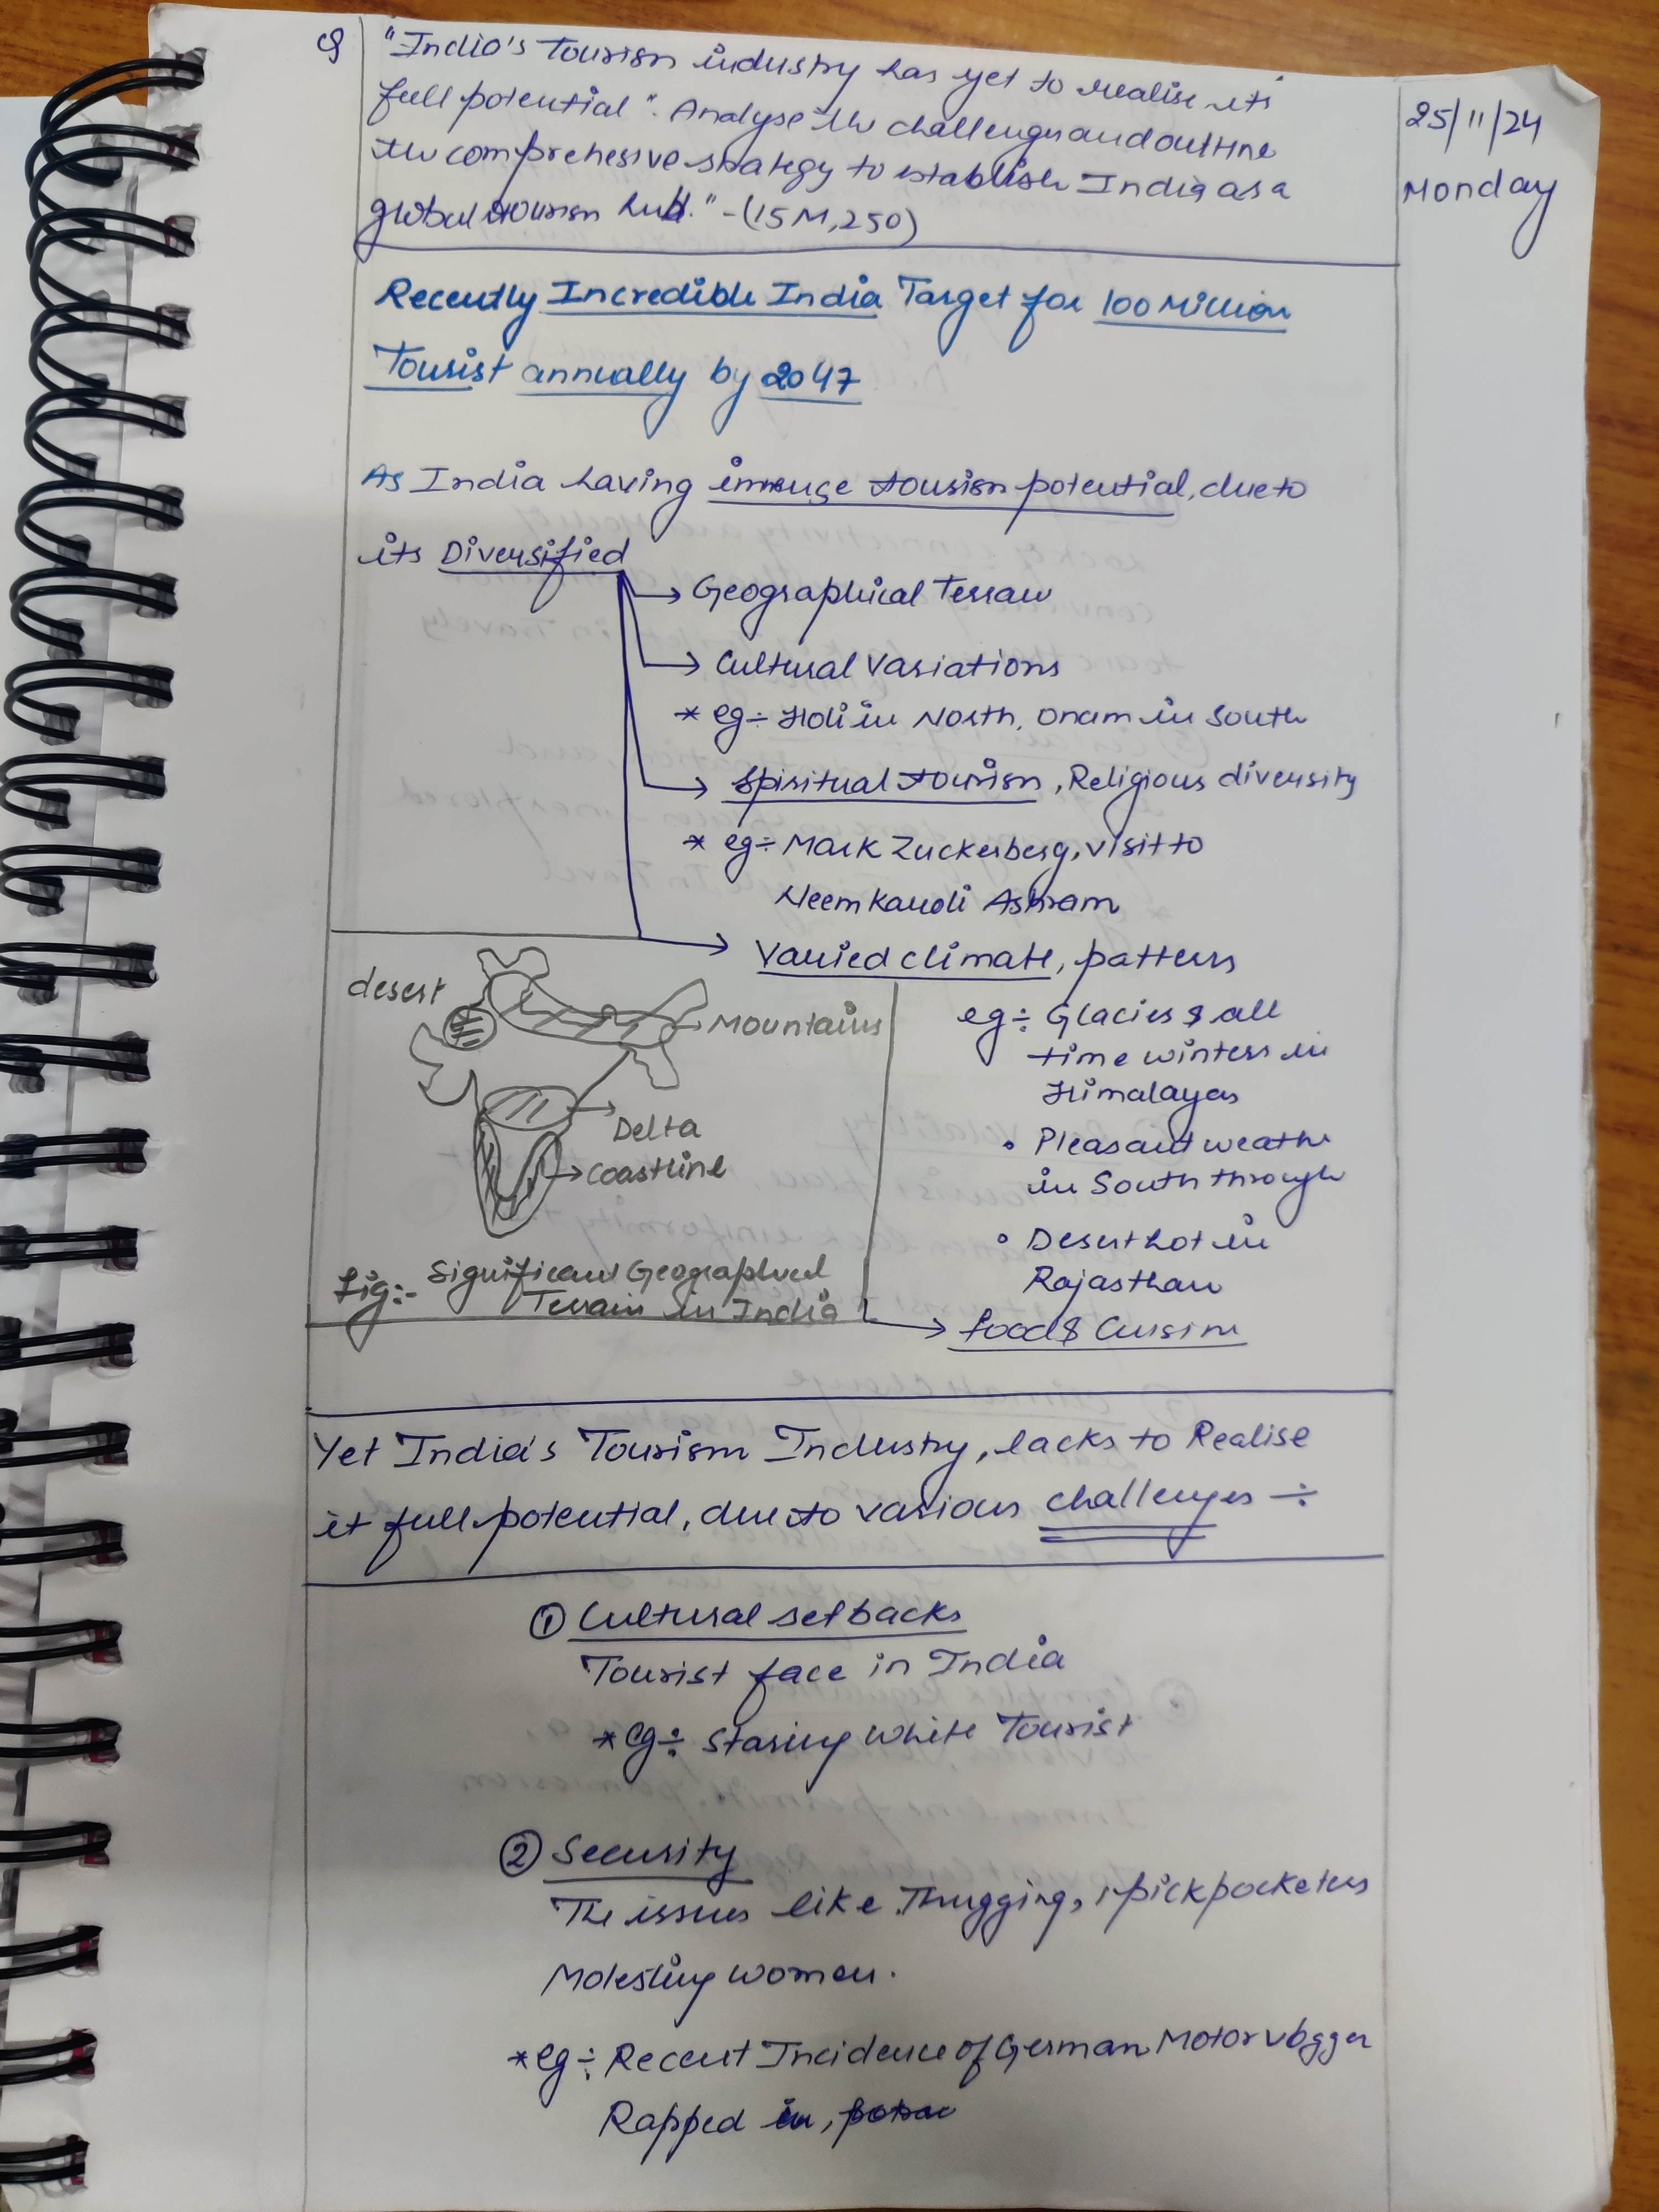 Q "India's Tourism industry has yet to realise its
full potential". Analyse the challenges and outline
the comprehesive strategy to establish India as a
global tourism hub." - (15M, 250)
25/11/24
Monday
Recently Incredible India Target for 100 Million
Tourist annually by 2047
As India having immense tourism potential, due to
its Diversified
→ Geographical Terrain
→ Cultural Variations
* eg ÷ Holi in North, Onam in South
→ Spiritual tourism, Religious diversity
* eg ÷ Mark Zuckerberg, visit to
Neem Karoli Ashram
→ Varied climate, patterns
eg ÷ Glacies & all
time winters in
Himalayas
• Pleasant weathe
in South through
• Desert hot in
Rajasthan
→ food & Cuisine
desert
Mountains
Delta
Coastline
Fig:- Significant Geographical
Terrain in India
Yet India's Tourism Industry, lacks to Realise
it full potential, due to various challenges ÷
① Cultural setbacks
Tourist face in India
* eg ÷ Staring White Tourist
② Security
The issues like Thugging, pickpocketers
Molesting women.
* eg ÷ Recent Incidence of German Motorvlogger
Rapped in,